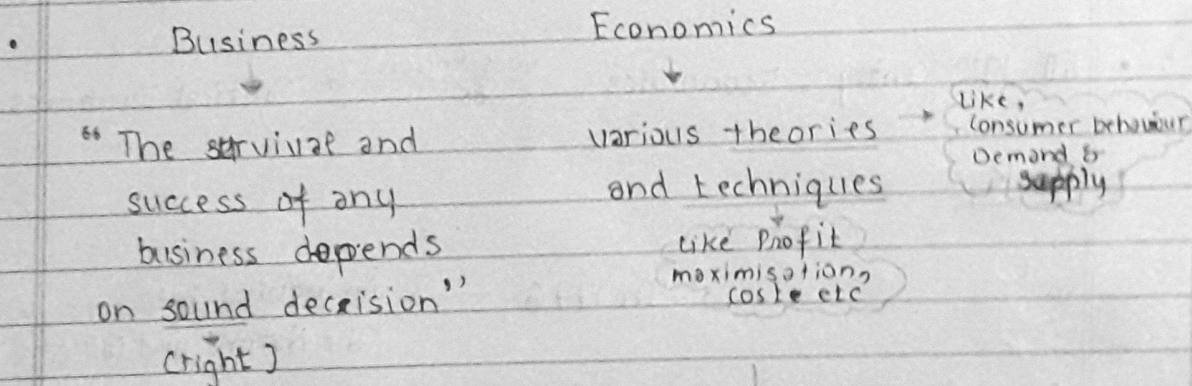 Business
"The survival and
success of any
business depends
on sound decision"
(right)
Economics
various theories
and techniques
Like,
Consumer behaviour
Demand &
supply
Like Profit
maximisation,
etc